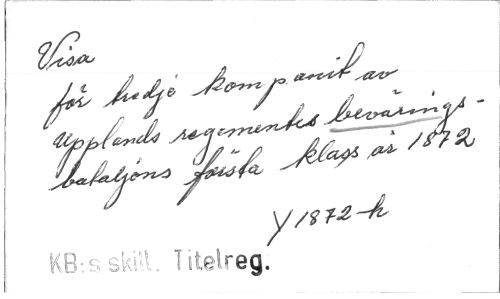 Visa
för tredje kompanit av
Upplands regementes bevärings-
bataljons första klass år 1872
Y 1872-h
KB:s skill. Titelreg.